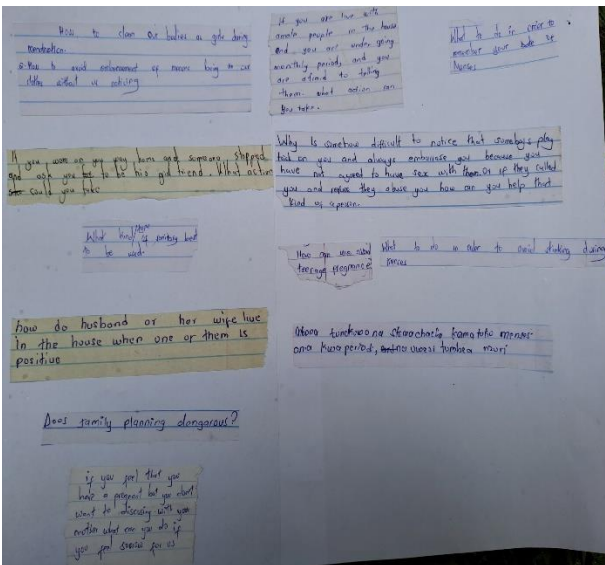 How to clean our bodies as girls during
menstruation.
How to avoid embarrassment of menses being to our
clothes without us noticing
If you are live with
male people in the house
and you are under going
monthly periods and you
are afraid to telling
them. what action can
you take.
What to do in order to
your
Menses
If you were on your way home and someone stopped
and ask you to be his girl friend. What action
could you take
Why Is somehow difficult to notice that somebody play
on you and always embarrass you because you
have not agreed to have sex with them or if they called
you and makes they abuse you how can you help that
kind of a person.
What kind of sanitary
to be used
How can you avoid
teenage pregnance
What to do in order to avoid stinking during
menses
how do husband or her wife live
in the house when one or them is
positive
kama tuko menses
ana kwa period, mzuri
Does family planning dangerous?
if you feel that you
have a pregnant but you don't
want to with you
mother what can you do if
you feel for us